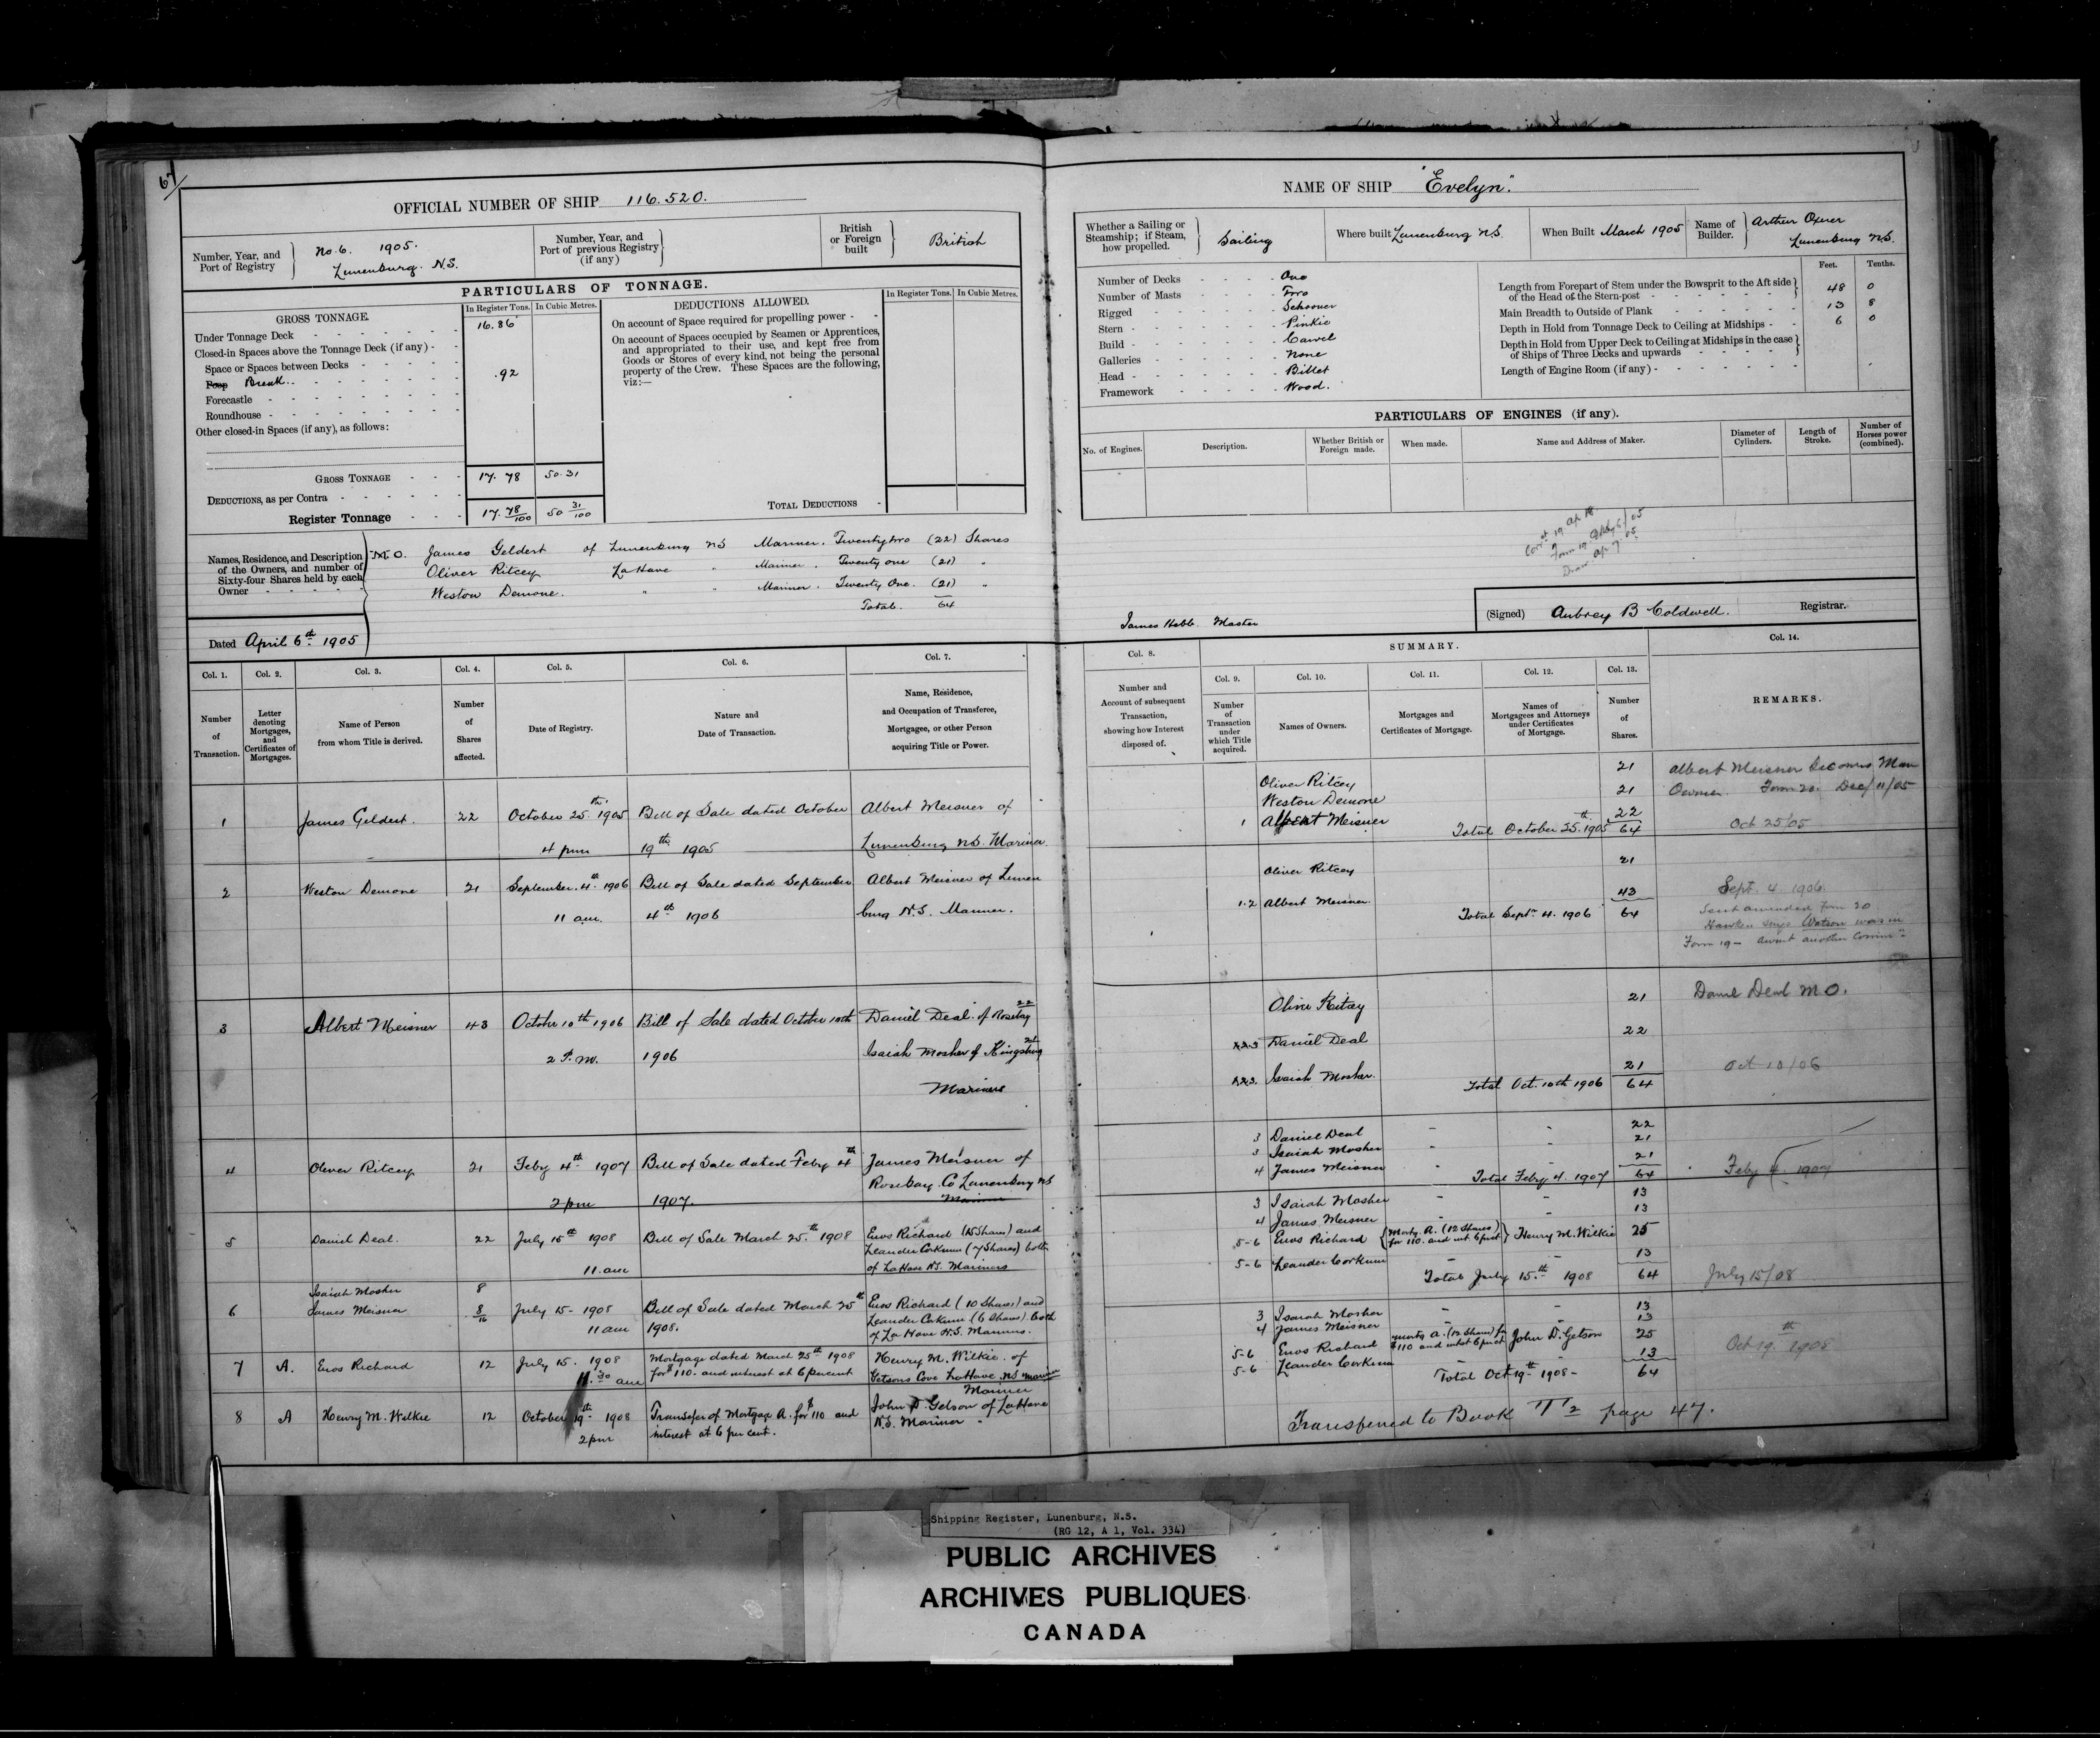 67
OFFICIAL NUMBER OF SHIP 116.520.
Number, Year, and Port of Registry } No 6. 1905. Lunenburg. N.S.
Number, Year, and Port of previous Registry (if any) }
British or Foreign built } British
PARTICULARS OF TONNAGE.
GROSS TONNAGE. In Register Tons. In Cubic Metres.
Under Tonnage Deck 16.86
Closed-in Spaces above the Tonnage Deck (if any) -
Space or Spaces between Decks
Poop Break. .92
Forecastle
Roundhouse
Other closed-in Spaces (if any), as follows:
GROSS TONNAGE 17.78 50.31
DEDUCTIONS, as per Contra
Register Tonnage 17.78/100 50 31/100
DEDUCTIONS ALLOWED. In Register Tons. In Cubic Metres.
On account of Space required for propelling power -
On account of Spaces occupied by Seamen or Apprentices,
and appropriated to their use, and kept free from
Goods or Stores of every kind, not being the personal
property of the Crew. These Spaces are the following,
viz:—
TOTAL DEDUCTIONS
Names, Residence, and Description
of the Owners, and number of
Sixty-four Shares held by each
Owner
M.O. James Geldert of Lunenburg NS Mariner. Twentytwo (22) Shares
Oliver Ritcey LaHave " Mariner. Twenty one (21) "
Weston Demone. " " Mariner. Twenty One. (21) "
Total. 64
Dated April 6th 1905
NAME OF SHIP "Evelyn".
Whether a Sailing or Steamship; if Steam, how propelled. } Sailing
Where built Lunenburg N.S.
When Built March 1905
Name of Builder. } Arthur Oxner Lunenburg N.S.
Number of Decks One
Number of Masts Two
Rigged Schooner
Stern Pinkie
Build Carvel
Galleries None
Head Billet
Framework Wood.
Feet. Tenths.
Length from Forepart of Stem under the Bowsprit to the Aft side
of the Head of the Stern-post 48 0
Main Breadth to Outside of Plank 13 8
Depth in Hold from Tonnage Deck to Ceiling at Midships - 6 0
Depth in Hold from Upper Deck to Ceiling at Midships in the case
of Ships of Three Decks and upwards
Length of Engine Room (if any) -
PARTICULARS OF ENGINES (if any).
No. of Engines. Description. Whether British or Foreign made. When made. Name and Address of Maker. Diameter of Cylinders. Length of Stroke. Number of Horses power (combined).
James Hebb Master
(Signed) Aubrey B Coldwell. Registrar.
Col. 1. Col. 2. Col. 3. Col. 4. Col. 5. Col. 6. Col. 7.
Number of Transaction.
Letter denoting Mortgages, and Certificates of Mortgages.
Name of Person from whom Title is derived.
Number of Shares affected.
Date of Registry.
Nature and Date of Transaction.
Name, Residence, and Occupation of Transferee, Mortgagee, or other Person acquiring Title or Power.
1 James Geldert. 22 October 25th 1905 Bill of Sale dated October Albert Meisner of
4 pm 19th 1905 Lunenburg NS. Mariner.
2 Weston Demone 21 September 4th 1906 Bill of Sale dated September Albert Meisner of Lunen
11 am. 4th 1906 burg N.S. Mariner.
3 Albert Meisner 43 October 10th 1906 Bill of Sale dated October 10th Daniel Deal of Rosebay 22
2 P.M. 1906 Isaiah Mosher of Kingsburg 21
Mariners
4 Oliver Ritcey 21 Feby 4th 1907 Bill of Sale dated Feby 4th James Meisner of
Rosebay Co Lunenburg NS
2 pm 1907. Mariner
5 Daniel Deal. 22 July 15th 1908 Bill of Sale March 25th 1908 Enos Richard (15 Shares) and
Leander Corkum (7 Shares) both
11 am of LaHave N.S. Mariners
Isaiah Mosher 8
6 James Meisner 8/16 July 15- 1908 Bill of Sale dated March 25th Enos Richard (10 Shares) and
11 am 1908. Leander Corkum (6 Shares) both
of La Have N.S. Mariners.
7 A. Enos Richard 12 July 15. 1908 Mortgage dated March 25th 1908 Henry M. Wilkie. of
11.30 am for $110. and interest at 6 percent Getsons Cove LaHave NS mariner
Mariner
8 A Henry M. Wilkie 12 October 19th 1908 Transfer of Mortgage A. for $110 and John D. Getson of LaHave
2 pm interest at 6 per cent. N.S. Mariner
Col. 8. SUMMARY. Col. 14.
Col. 9. Col. 10. Col. 11. Col. 12. Col. 13.
Number and Account of subsequent Transaction, showing how Interest disposed of.
Number of Transaction under which Title acquired.
Names of Owners.
Mortgages and Certificates of Mortgage.
Names of Mortgagees and Attorneys under Certificates of Mortgage.
Number of Shares.
REMARKS.
Oliver Ritcey 21 Albert Meisner becomes Man
Weston Demone 21 Owner. Form 20. Dec/11/05
1 Albert Meisner 22
Total October 25th 1905 64 Oct 25/05
Oliver Ritcey 21
1.2 Albert Meisner 43 Sept. 4. 1906.
Total Sept 4. 1906 64 Sent amended Form 20
Hawken says Watson was in
Form 19 -
Oliver Ritcey 21 Daniel Deal M O.
Daniel Deal 22
Isaiah Mosher. 21
Total Oct. 10th 1906 64 Oct 10/06
3 Daniel Deal 22
3 Isaiah Mosher 21
4 James Meisner 21
Total Feby 4. 1907 64 Feby 4 1907
3 Isaiah Mosher 13
4 James Meisner 13
5-6 Enos Richard { Mortg A. (12 Shares) for 110. and int. 6 pcnt } Henry M. Wilkie 25
5-6 Leander Corkum 13
Total July 15th 1908 64 July 15/08
3 Isaiah Mosher 13
4 James Meisner 13
5-6 Enos Richard Mortg A. (12 Shares) for $110 and intst 6 pcnt John D. Getson 25
5-6 Leander Corkum 13
Total Oct 19th 1908 - 64 Oct 19th 1908
Transferred to Book T2 page 47.
Shipping Register, Lunenburg, N.S.
(RG 12, A 1, Vol. 334)
PUBLIC ARCHIVES
ARCHIVES PUBLIQUES
CANADA